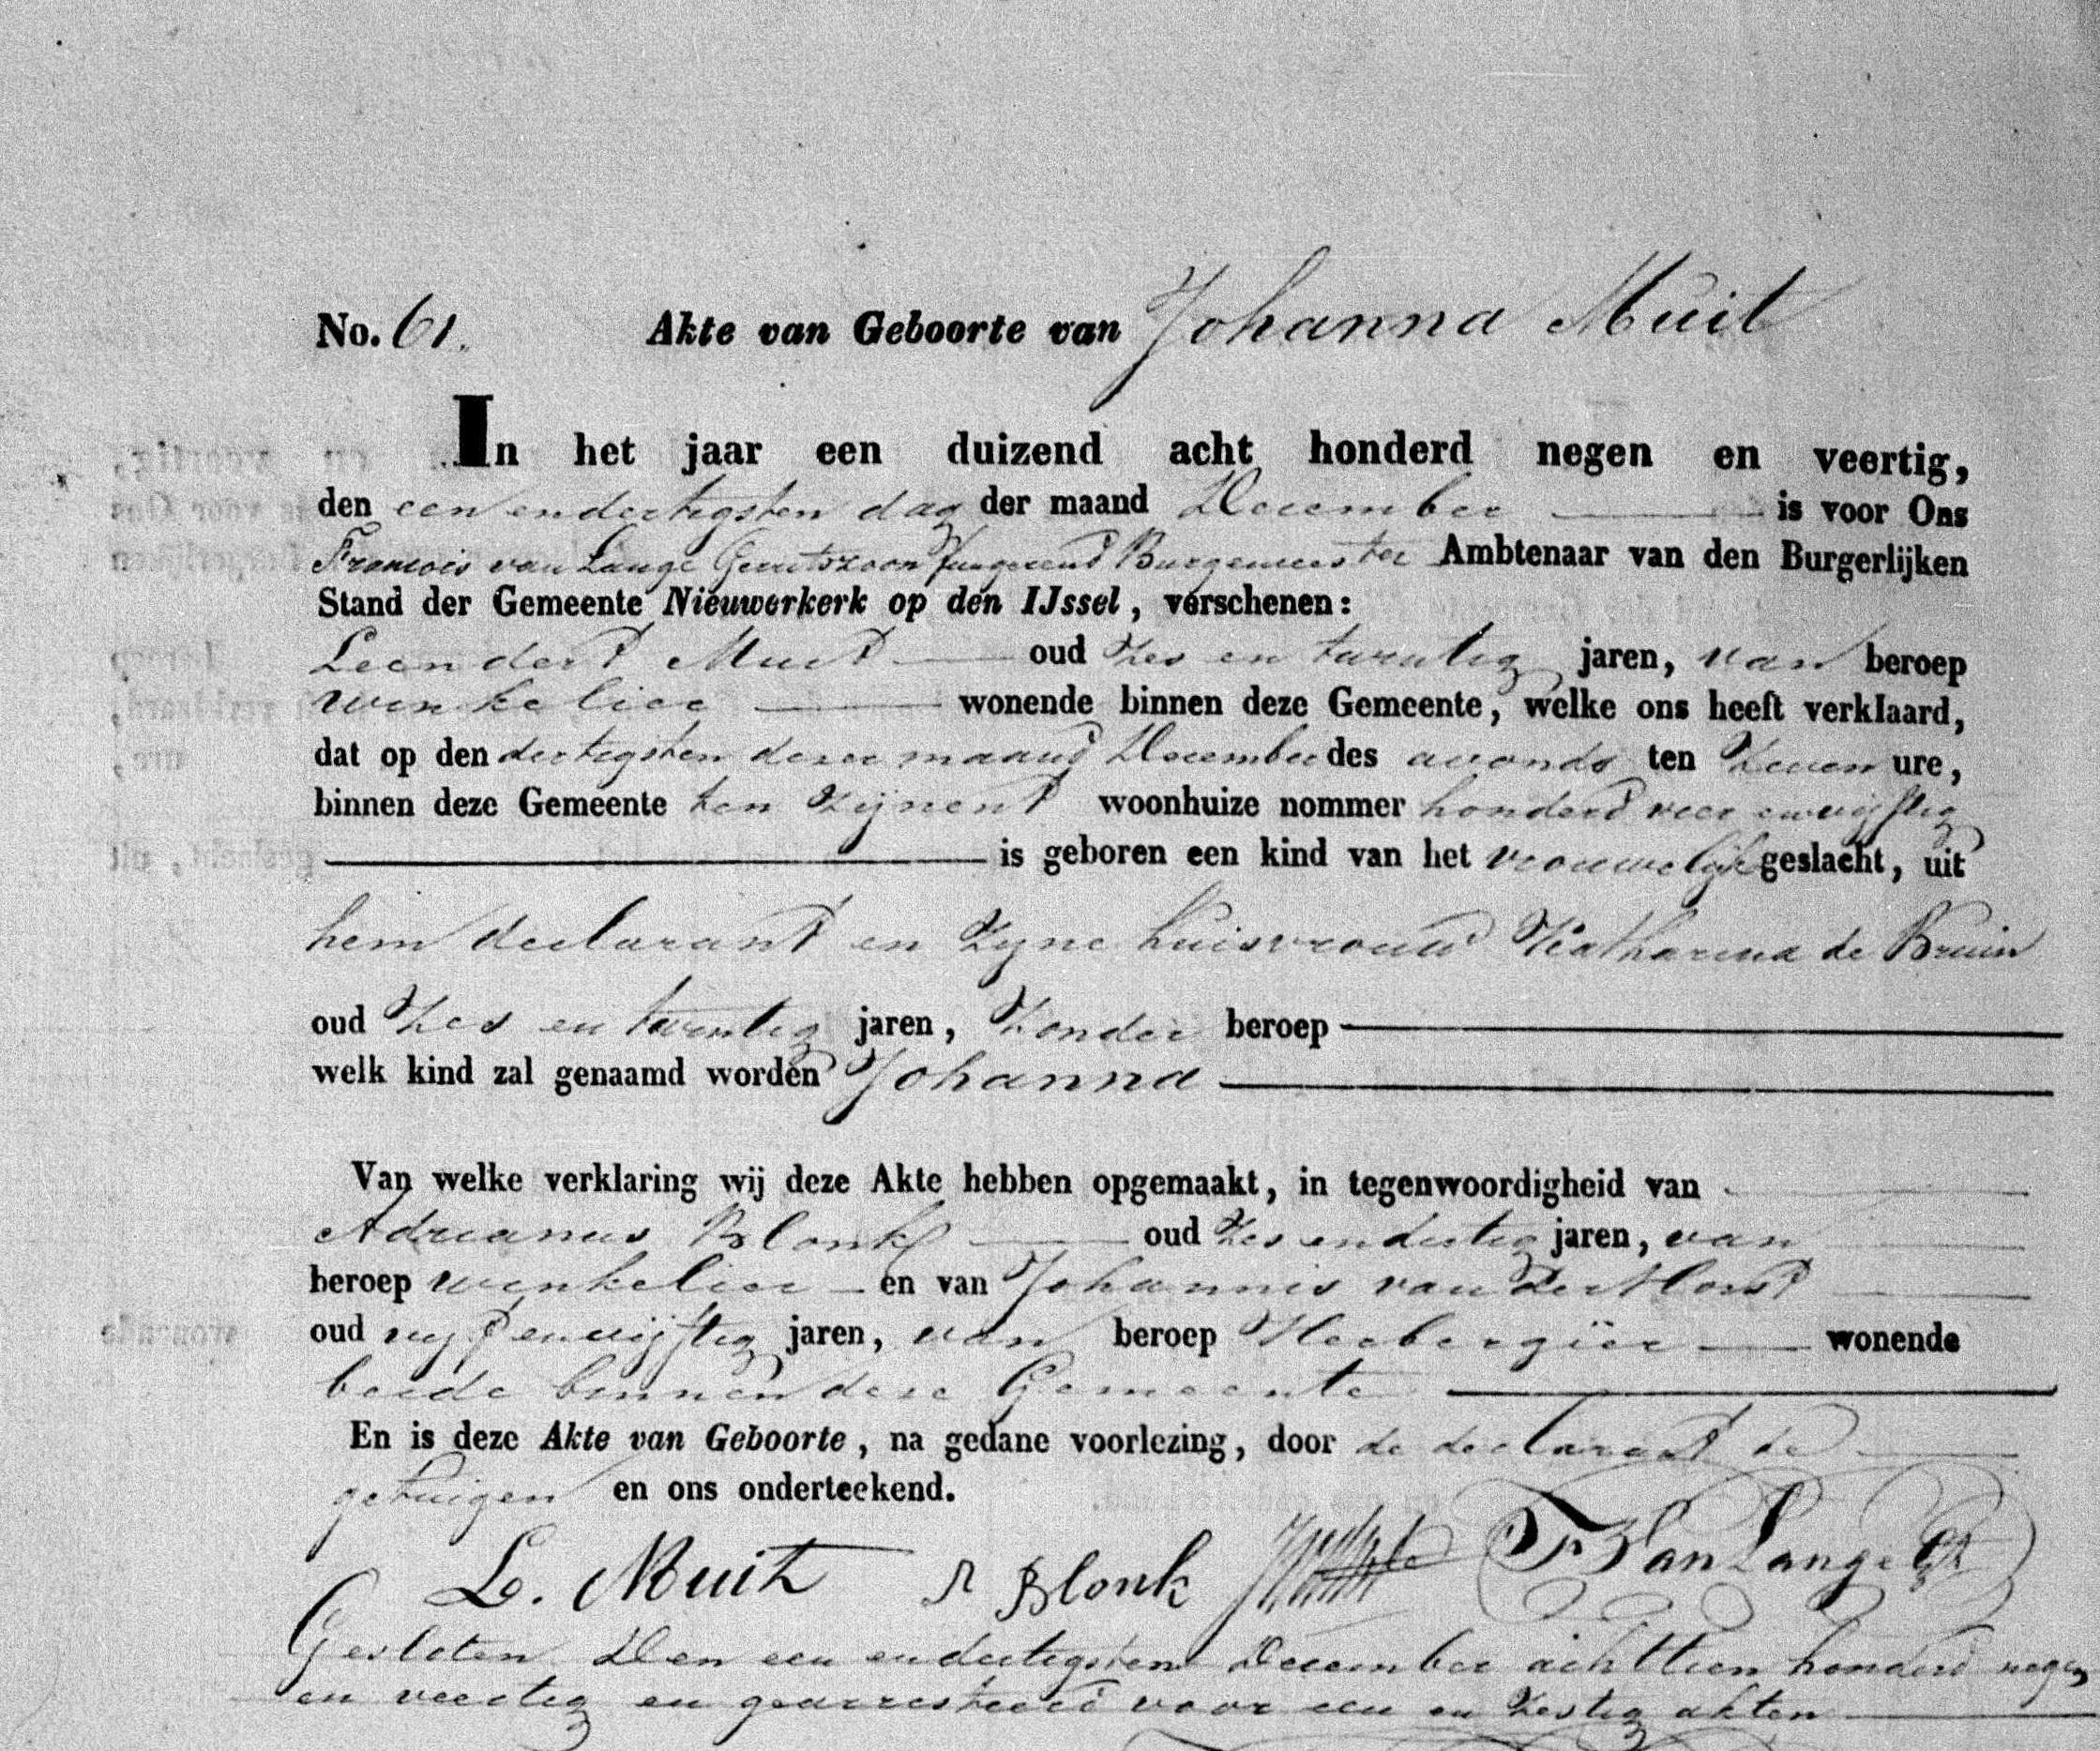 No. 61. Akte van Geboorte van Johanna Muit
In het jaar een duizend acht honderd negen en veertig,
den een en dertigsten dag der maand December is voor Ons
Francois van Lange Gerritszoon fungerend Burgemeester Ambtenaar van den Burgerlijken
Stand der Gemeente Nieuwerkerk op den IJssel, verschenen:
Leendert Muit oud zes en twintig jaren, van beroep
winkelier wonende binnen deze Gemeente, welke ons heeft verklaard,
dat op den dertigsten dezer maand December des avonds ten zeven ure,
binnen deze Gemeente ten zijnent woonhuize nommer honderd vier en vijftig
is geboren een kind van het vrouwelijk geslacht, uit
hem declarant en zyne huisvrouw Katharina de Bruin
oud zes en twintig jaren, zonder beroep
welk kind zal genaamd worden Johanna
Van welke verklaring wij deze Akte hebben opgemaakt, in tegenwoordigheid van
Adrianus Blonk oud zes en dertig jaren, van
beroep winkelier en van Johannis van der Horst
oud vyf en vijftig jaren, van beroep Herbergïer wonende
beide binnen deze Gemeente
En is deze Akte van Geboorte, na gedane voorlezing, door de declarant de
getuigen en ons onderteekend.
L. Muit A Blonk Fr Van Lange Gz
Gesloten Den een en dertigsten December achttien honderd negen
en veertig en gearresteerd voor een en zestig akten